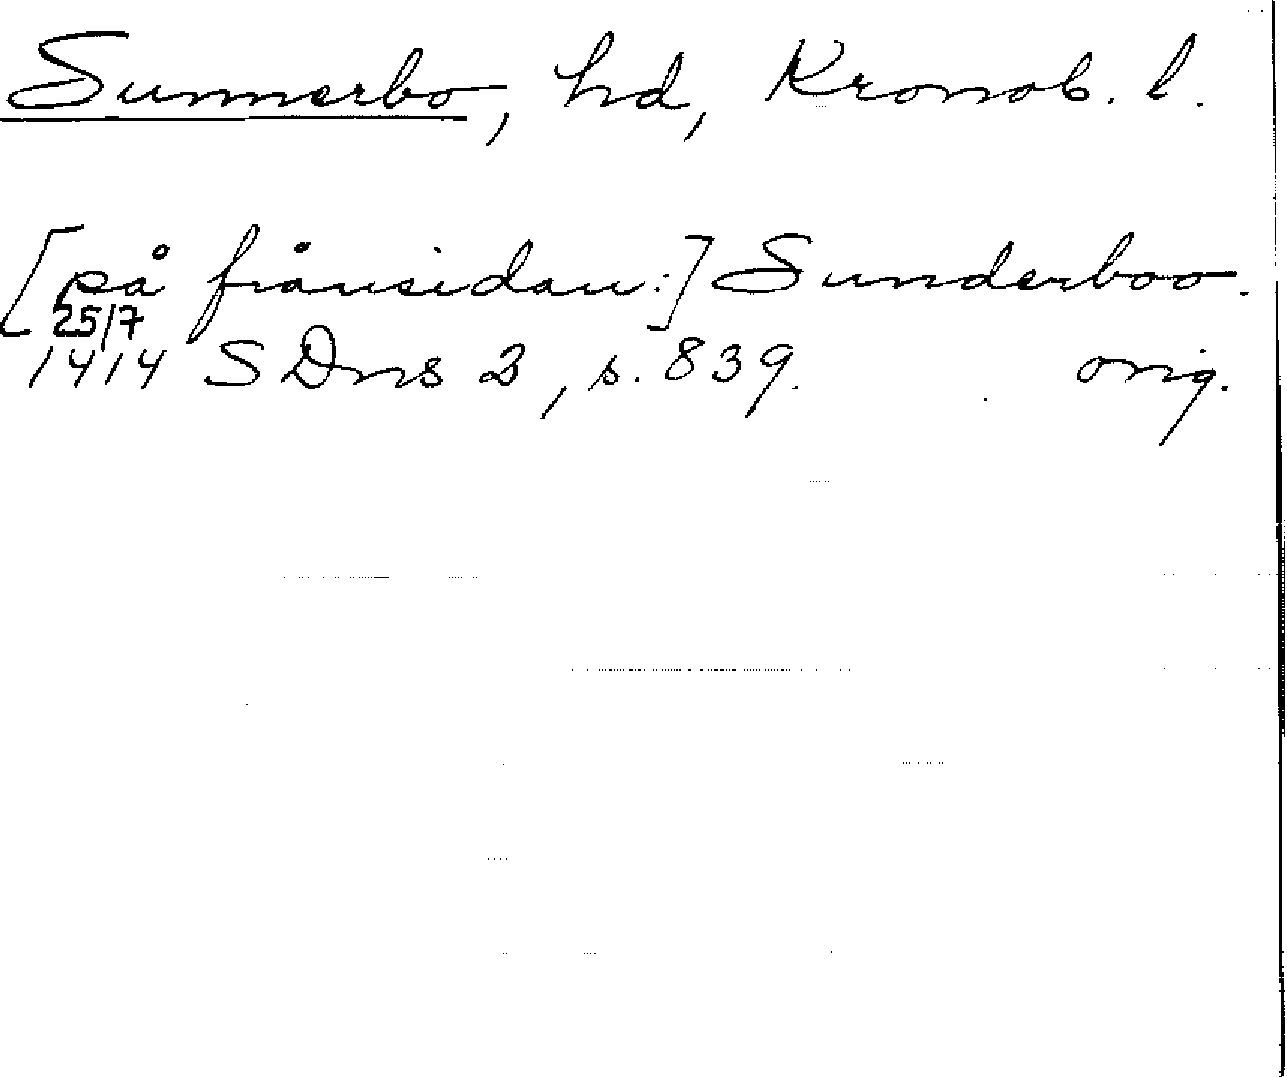 Sunnerbo, hd, Kronob. l.
[på frånsidan:] Sunderboo.
25/7
1414 SDns 2, s. 839. orig.